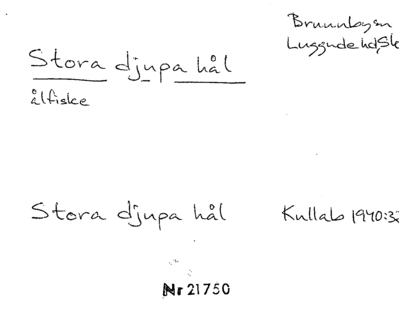 Brunnbysn
Luggude hd, Sk
Stora djupa hål
ålfiske
Stora djupa hål Kullab 1940:32
Nr 21750